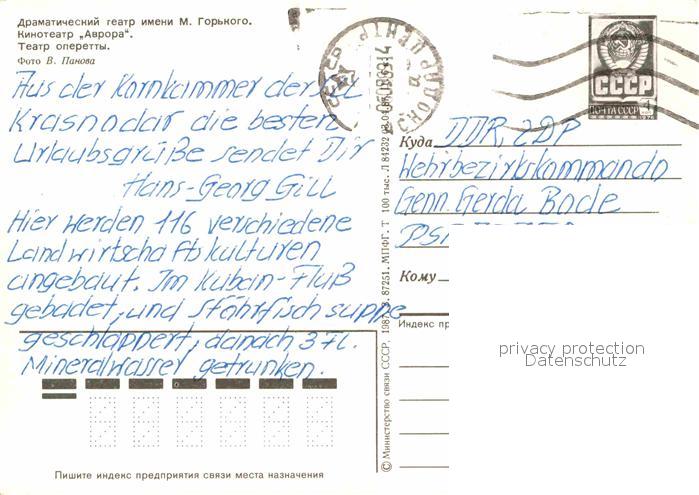 Драматический театр имени М. Горького.
Кинотеатр „Аврора".
Театр оперетты.
Фото В. Панова
Aus der Kornkammer der SU
Krasnodar die besten
Urlaubsgrüße sendet Dir
Hans-Georg Gill
Hier werden 116 verschiedene
Landwirtschaftskulturen
angebaut. Im Kuban-Fluß
gebadet, und Stöhrfischsuppe
geschlappert, danach 3 Fl.
Mineralwasser getrunken.
Пишите индекс предприятия связи места назначения
© Министерство связи СССР. 1987. З. 87251. МПФГ. Т 100 тыс.
СССР
ПОЧТА СССР 4
Куда DDR, ZDP
Wehrbezirkskommando
Genn. Gerda Bode
Кому
Индекс пр
privacy protection
Datenschutz